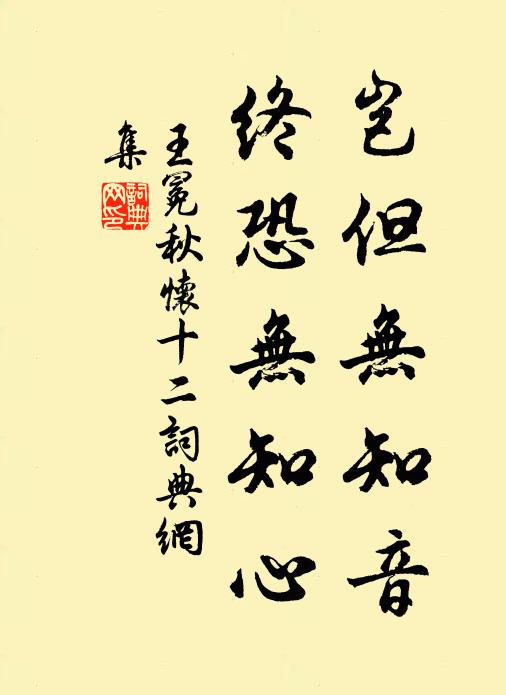 豈但無知音
終恐無知心
王冕秋懷十二詞典網
集
詞典
网印